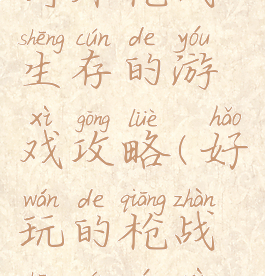 shēng cún de yóu
生存的游
xì gōng lüè hǎo
戏攻略(好
wán de qiāng zhàn
玩的枪战